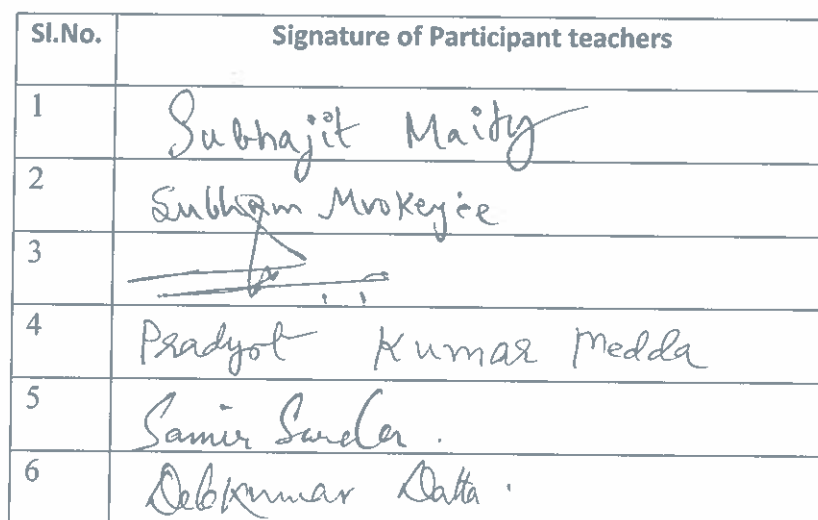 Sl.No. Signature of Participant teachers
1 Subhajit Maity
2 Subham Mrokerjee
3
4 Pradyot Kumar Medda
5 Samir
6 Debkumar Datta.